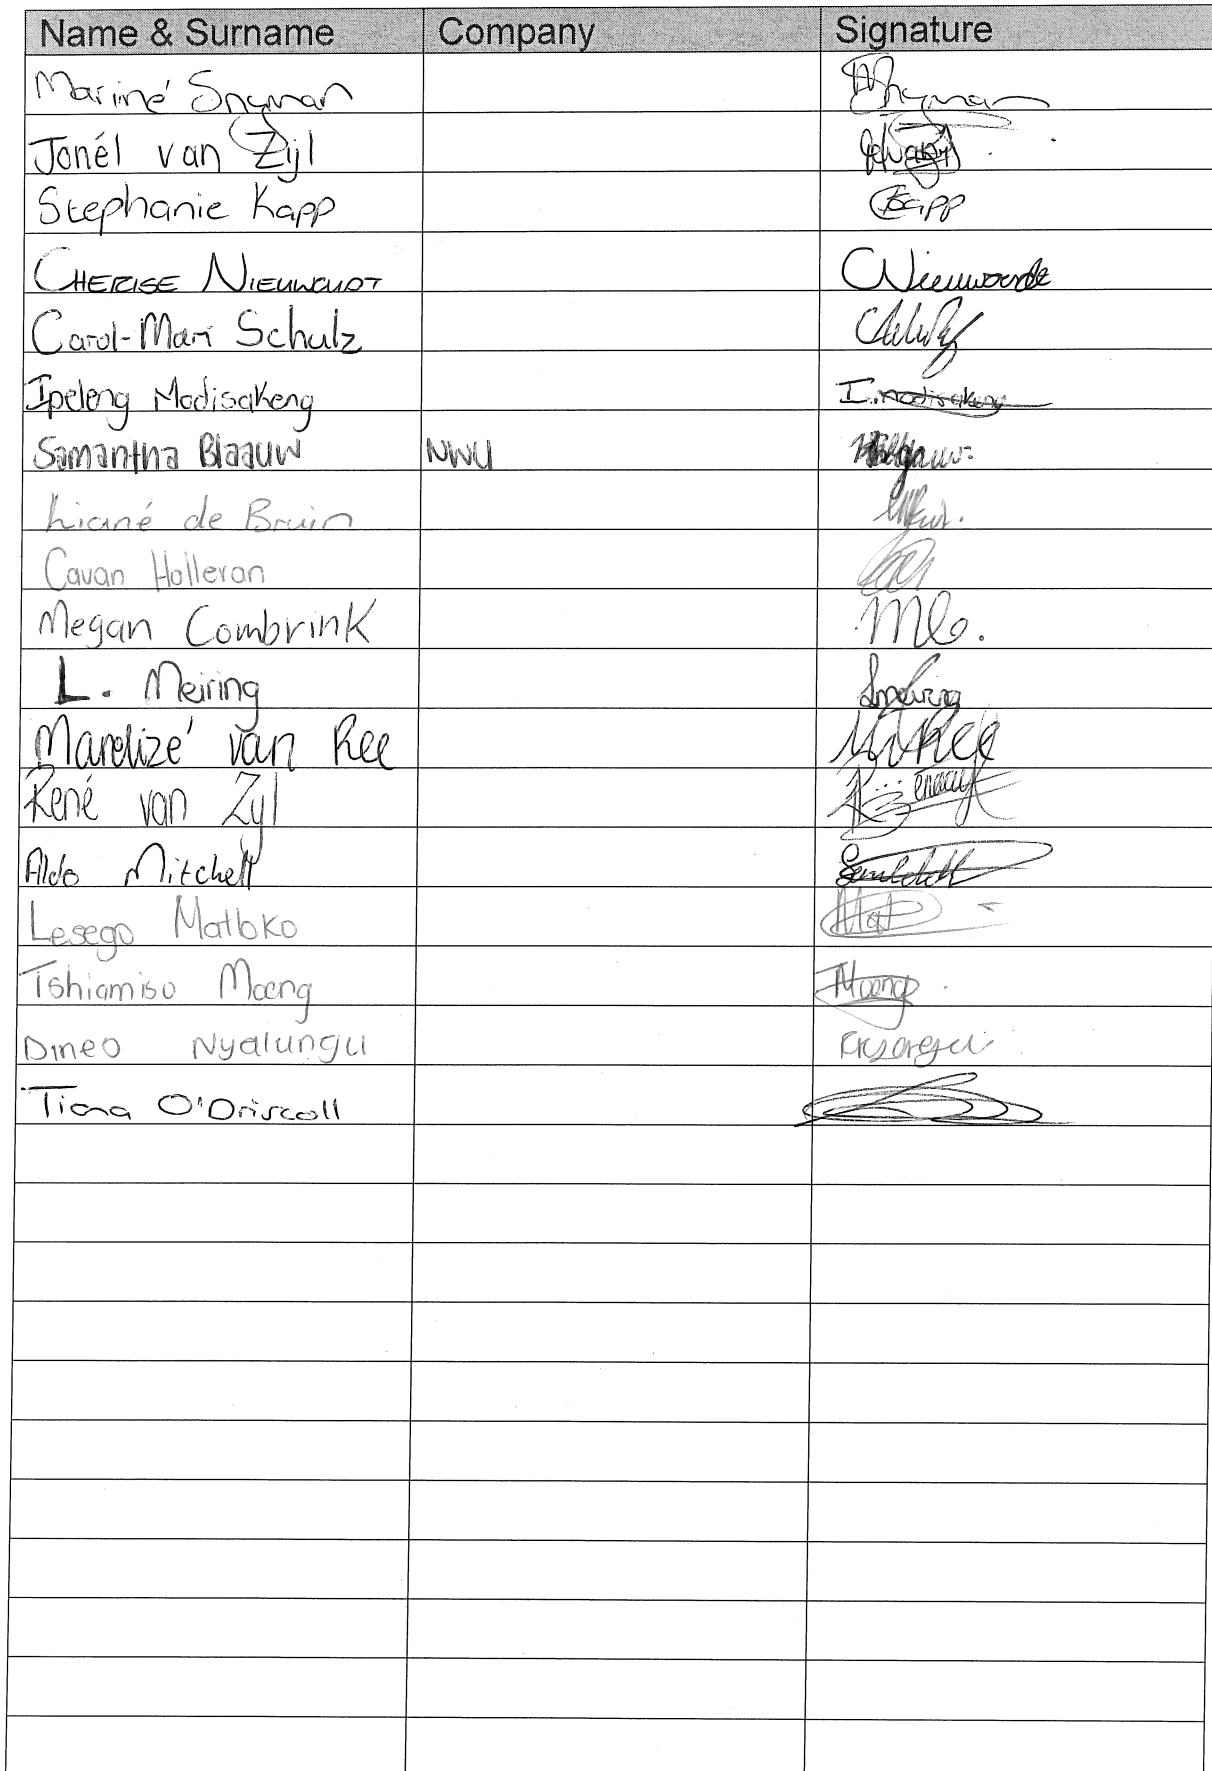 Name & Surname Company Signature
Mariné Snyman Snyman
Jonél van Zijl
Stephanie Kapp Kapp
CHERISE NIEUWOUDT CNieuwoudt
Carol-Mari Schulz
Ipeleng Modisakeng I.modisakeng
Samantha Blaauw NWU
Liané de Bruin
Cavan Holleron
Megan Combrink MC.
L. Meiring
Marelizé van Ree MvRee
René van Zyl
Aldo Mitchell
Lesego Matloko
Tshiamiso Moeng Moeng
Dineo Nyalungu
Tiana O'Driscoll